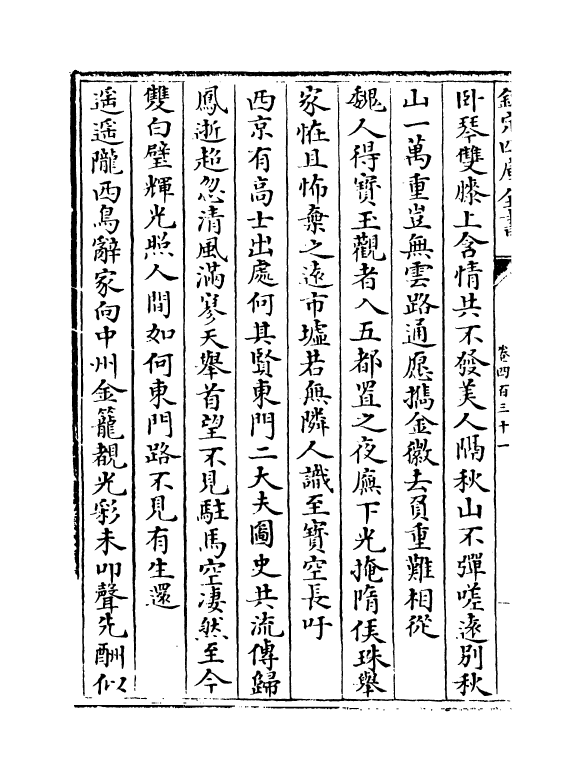 欽定四庫全書
卷四百三十一
卧琴雙膝上含情共不發美人隔秋山不彈嗟遠别秋
山一萬重豈無雲路通愿攜金徽去負重難相從
魏人得寶玉觀者入五都置之夜廡下光掩隋侯珠舉
家怪且怖棄之遠市墟若無隣人識至寶空長吁
西京有高士出處何其賢東門二大夫圖史共流傳歸
鳳逝超忽清風滿寥天舉首望不見駐馬空凄然至今
雙白璧輝光照人間如何東門路不見有生還
遥遥隴西鳥辭家向中州金籠覩光彩未叩聲先酬似